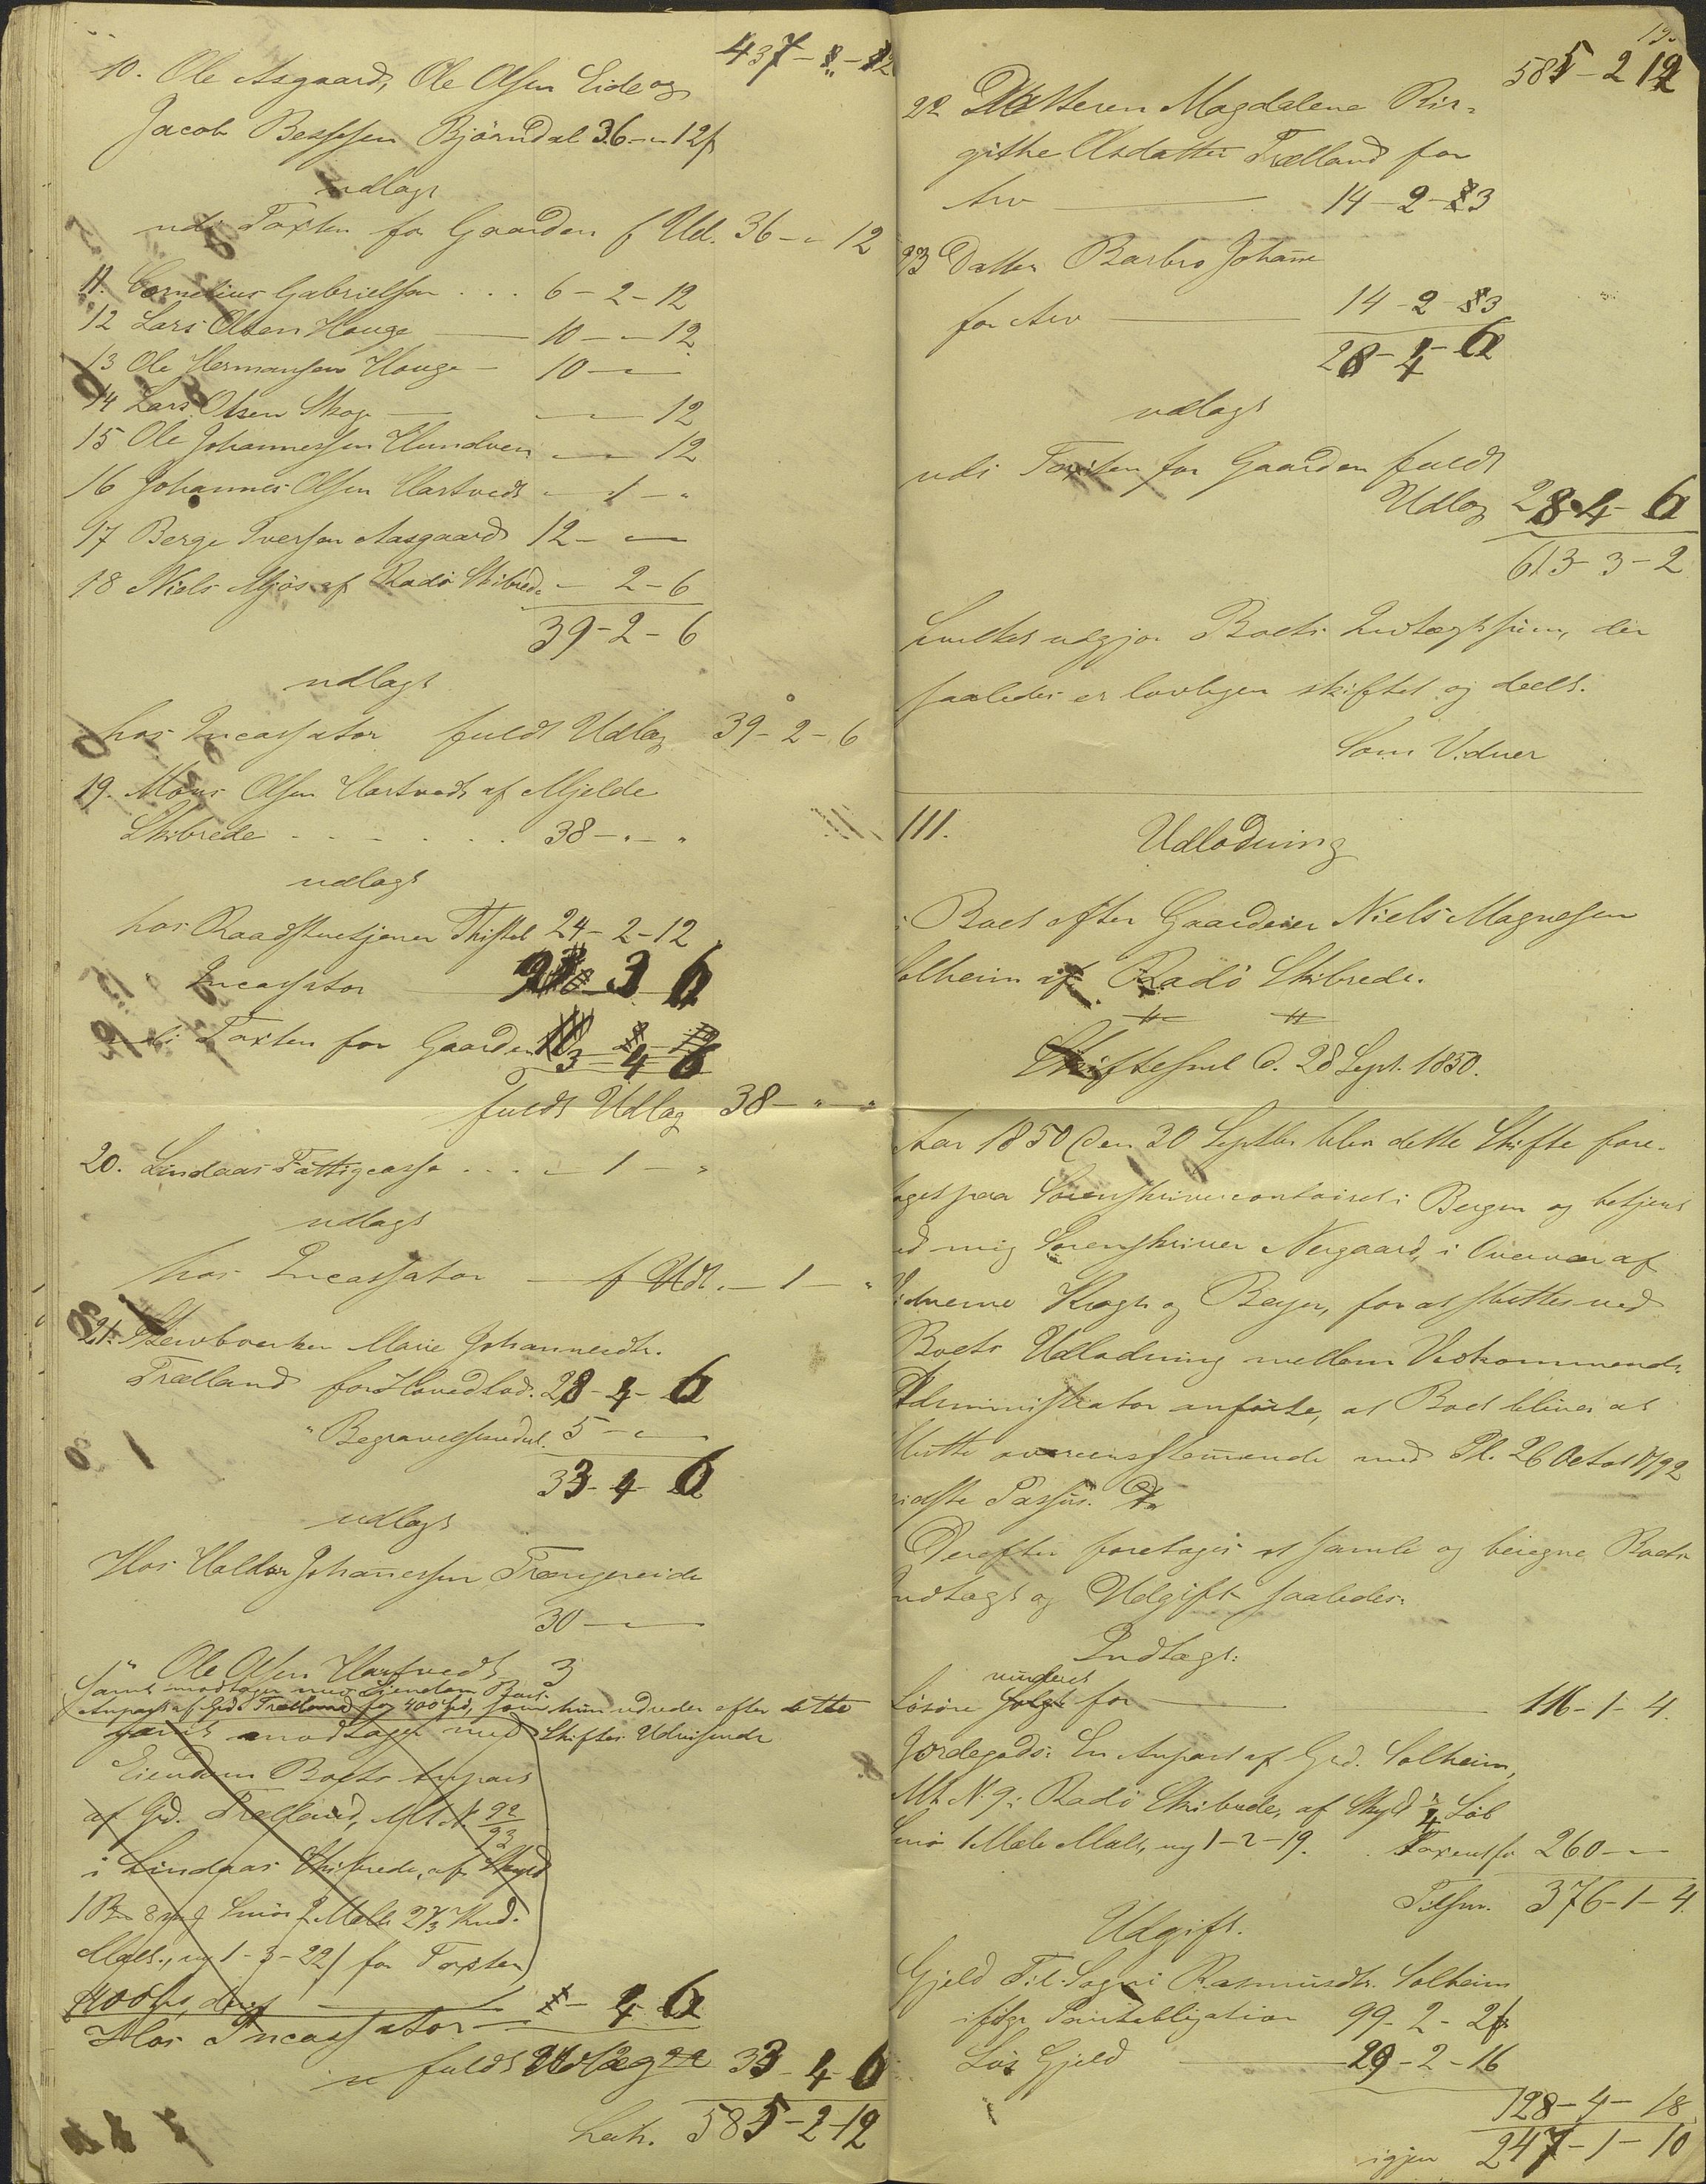 437-"-12
10. Ole Asgaard, Ole Olsen Eide og
Jacob Bessesen Bjørndal 36-"-12 ß
udlagt
udi Taxten for Gaarden f Udl. 36-"-12
11. Cornelius Gabrielsen . . . 6-2-12
12 Lars Olsen Houge — 10-"-12
13 Ole Hermansen Houge — 10-"-
14 Lars Olsen Skoge — "-"-12
15 Ole Johannessen Hundven "-"-12
16 Johannes Olsen Hartvedt "-1-"
17 Berge Iversen Aasgaard 12-"-
18 Niels Mjøs af Radø Skibrede - 2-6
39-2-6
udlagt
hos Incassator fuldt Udlæg 39-2-6
19. Mons Olsen Hartvedt af Mjelde
Skibrede - - - - - 38-"-"
udlagt
hos Raadstuetjener Thistel 24-2-12
Incassator 3 6
udi Taxten for Gaarden 3-4-6
fuldt Udlæg 38-"-"
20. Lindaas Fattigcasse . . . "-1-"
udlagt
hos Incassator — f Udl. - 1 - "
21. Stervboenken Marie Johannesdtr.
Trælland for Hovedlod. 28-4-6
" Begravelsesudst. 5-"-
33-4-6
udlagt
Hos Haldor Johannessen Trængereide
30-"-
" Ole Olsen Hartvedt 3
samt modtager med Eiendom Boets
Anpart af Grd. Trælland for 400 Spd, som hun udreder efter dette
samt modtager med Skiftes Udvisende
Eiendom Boets Anpart
af Grd. Trælland, Mt. N. 92/93
i Lindaas Skibrede, af Skyld
1 Bpd 8 mk Smør 2 Mæle 2 2/3 Knd.
Malt, ny 1-3-22 / for Taxten
400 Spd, deraf — "-4-6
Hos Incassator —
fuldt Udlæg 33-4-6
Lat. 585-2-12
585-2-12
22 Datteren Magdalene Bir-
githe Olsdatter Trælland for
Arv — 14-2-3
23 Datter Barbro Johanne
for Arv — 14-2-3
28-4-6
udlagt
udi Taxten for Gaarden fuldt
Udlæg 28-4-6
613-3-2
hvilket udgjør Boets Indtægtssum, der
saaledes er lovligen skiftet og deelt.
Som Vidner
111.
Udlodning
i Boet efter Gaardeier Niels Magnesen
Solheim af Radø Skibrede.
Skiftesml d. 28 Sept. 1850.
Aar 1850 den 30 Septbr blev dette Skifte fore-
taget paa Sorenskrivercontoiret i Bergen og betjent
ved mig Sorenskriver Nergaard, i Overvær af
Vidnerne Krogh og Beyer, for at sluttes ved
Boets Udlodning mellem Vedkommende.
Administrator anførte, at Boet bliver at
slutte overeensstemmende med Pl. 26 Octor 1792
sidste Passus.
Derefter foretages at samle og beregne Boets
Indtægt og Udgift saaledes:
Indtægt:
vurderet
Løsøre solgt for — 116-1-4.
Jordegods: En Anpart af Grd. Solheim,
Mt. N. 9 i Radø Skibrede, af Skyld 3/4 Løb
Smør 1 Mæle Malt, ny 1-2-19. Taxeret for 260-"-
Tilsm. 376-1-4.
Udgift.
Gjeld Til Sogni Rasmusdtr. Solheim
ifølge Panteobligation 99-2-2
Løs Gjeld — 29-2-16
128-4-18
igjen 247-1-10